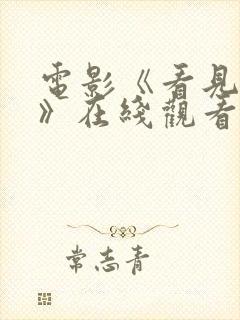 電影《看見
》在綫觀看
常志青